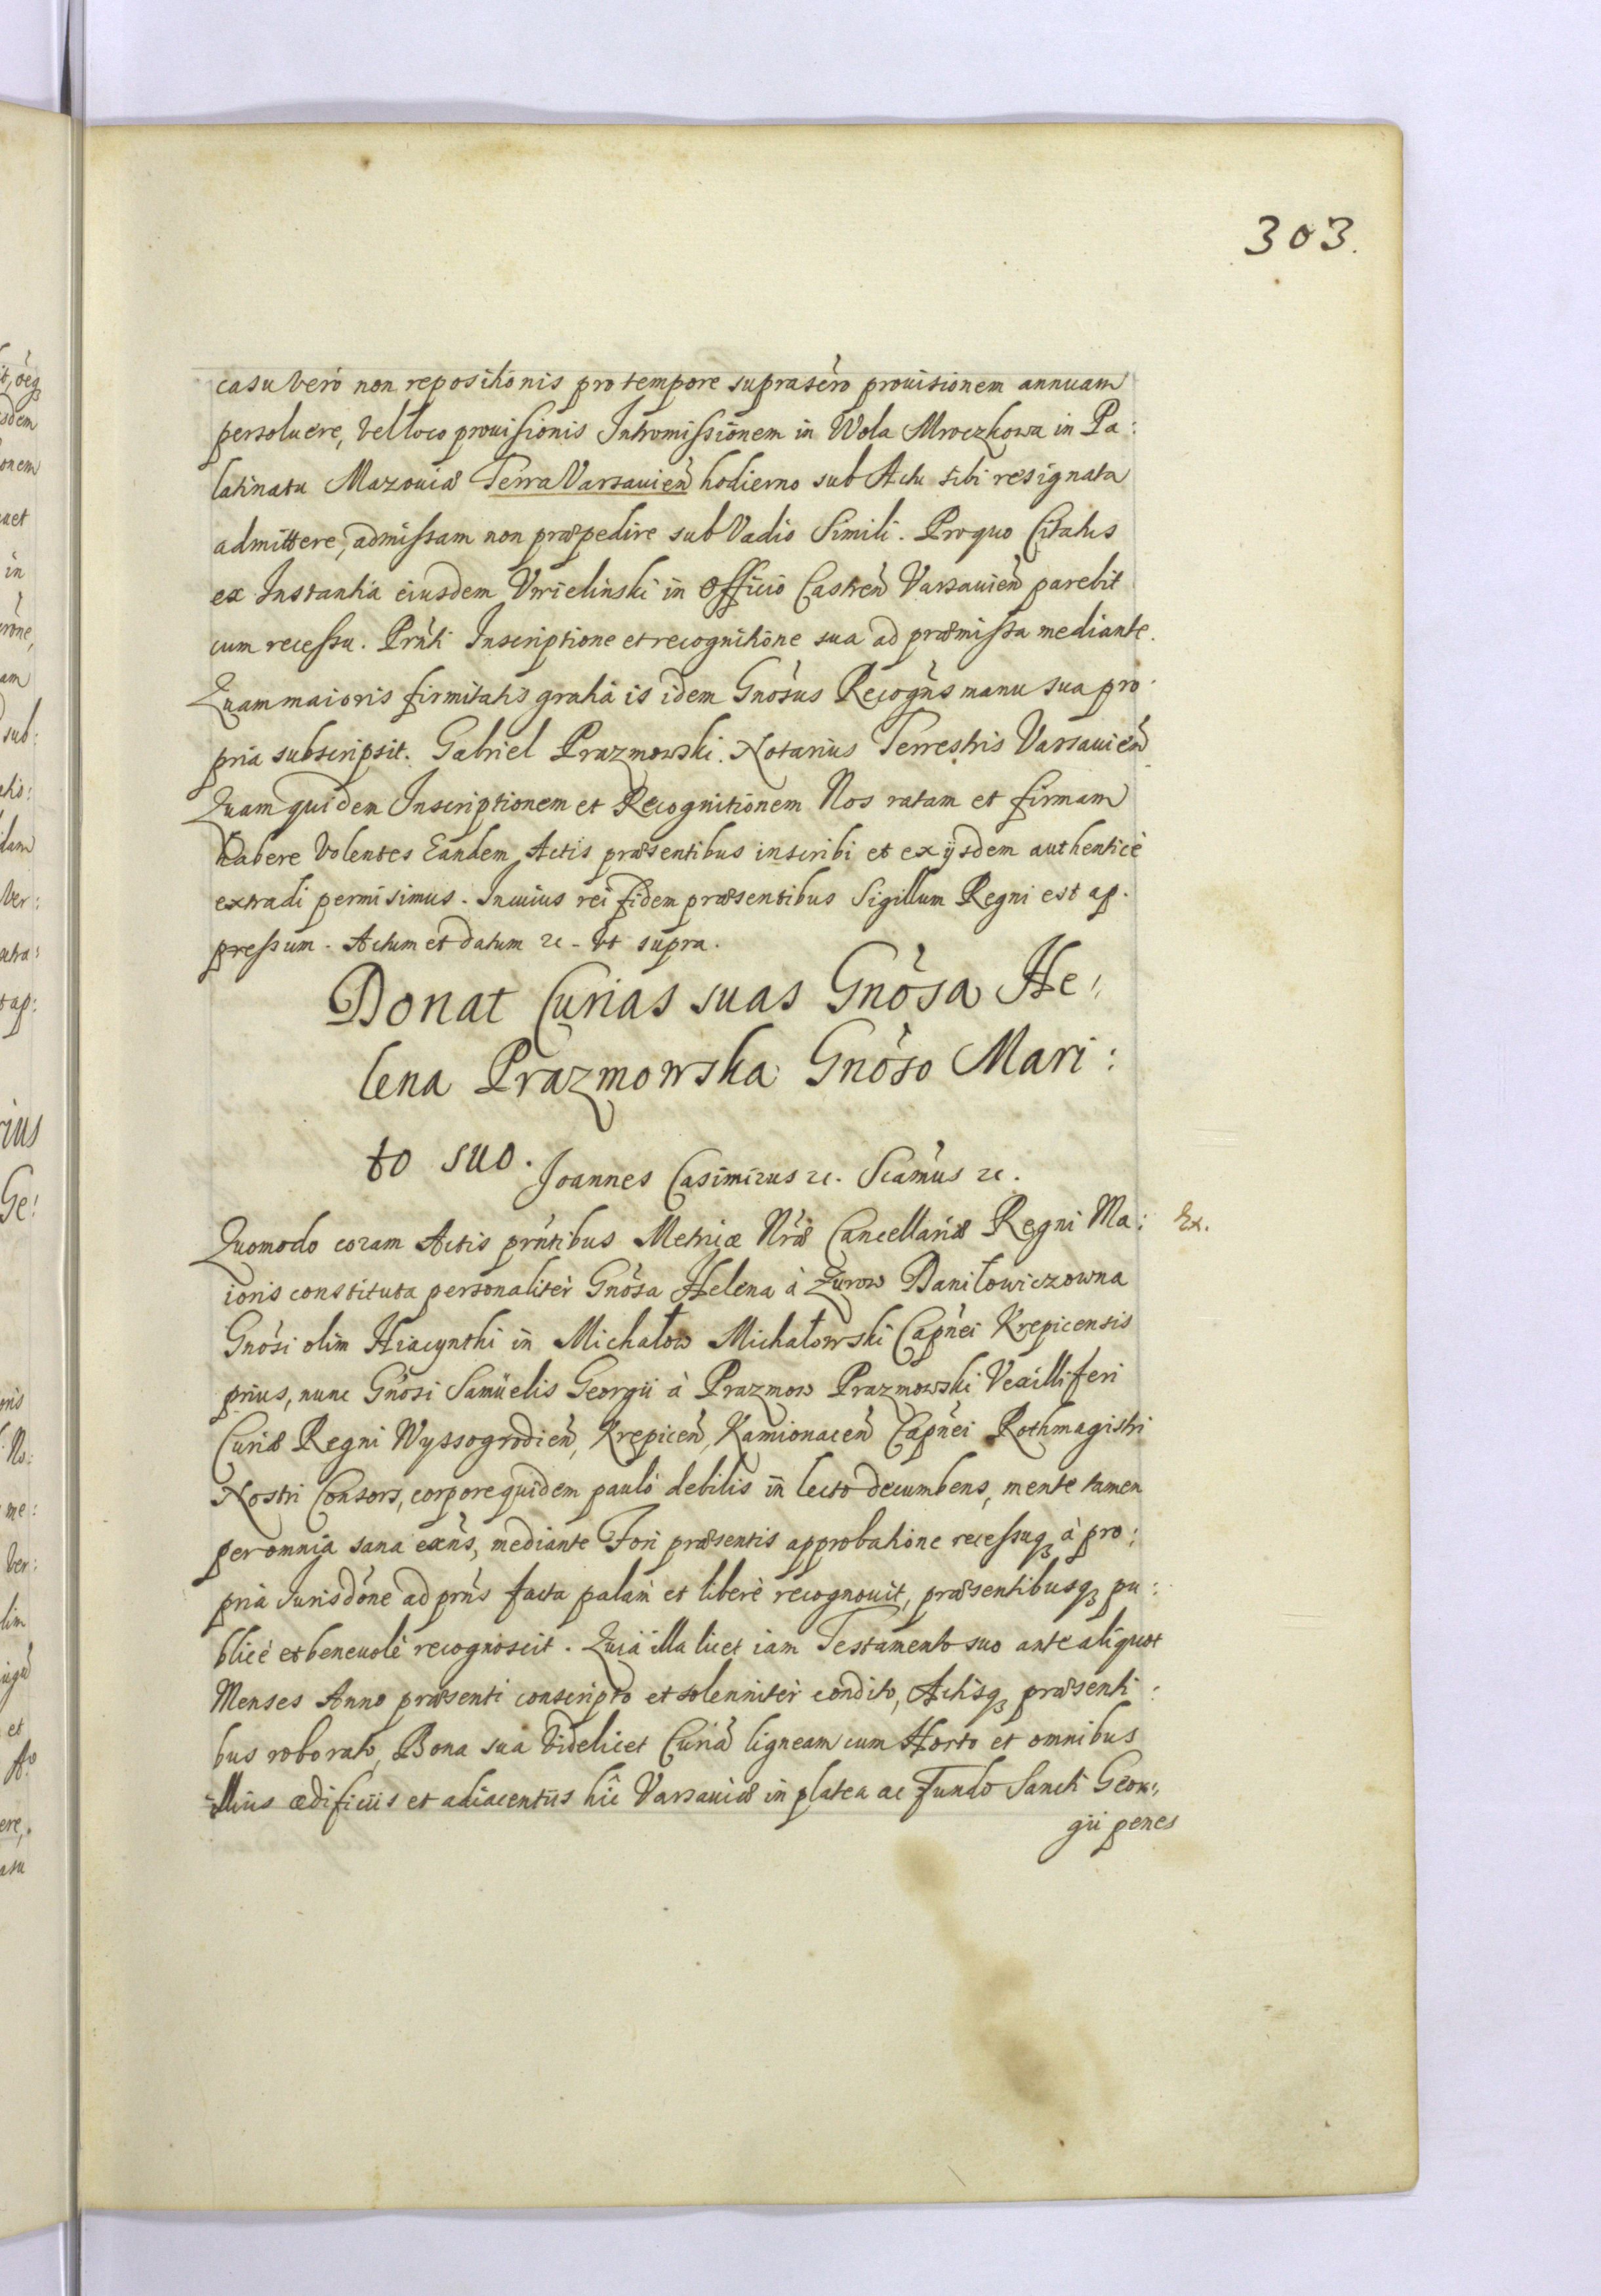 303.
casu verò non repositionis pro tempore suprasc̀ro prouisionem annuam
persoluere, vel loco prouisionis Intromissionem in Wola Mroczkowa in Pa:
latinatu Mazouiæ Terra Varsauień hodierno sub Actu sibi resignata
admittere, admissam non præpedire sub Vadio Simili. Pro quo Citatus
ex Instantia eiusdem in Officio Castreń Varsauień parebit
cum recessu. Prńti Inscriptione et recognitione sua ad præmissa mediante.
Quam maioris firmitatis gratia is idem Gnósus Recogńs manu sua pro:
pria subscripsit. Gabriel Prazmowski Notarius Terrestris Varsauień
Quam quidem Inscriptionem et Recognitionem Nos ratam et firmam
habere volentes Eandem Actis præsentibus inscribi et ex ijsdem authenticè
extradi permisimus. In cuius rei fidem præsentibus Sigillum Regni est ap:
pressum. Actum et datum &c. vt supra.
Donat Curias suas Gnósa He:
lena Prazmowska Gnóso Mari:
to suo.
Joannes Casimirus &c. Scámus &c.
Quomodo coram Actis prńtibus Metricæ Nŕæ Cancellariæ Regni Ma: Ex.
ioris constituta personalitèr Gnósa Helena à Zurow Daniłowiczowna
Gnósi olim Hiacynthi in Michałow Michałowski Capńei Krepicensis
prius, nunc Gnósi Samüelis Georgii à Prazmow Prazmowski Vexilliferi
Curiæ Regni Wyssogrodień, Krepiceń, Kamionaceń Capńei Rothmagistri
Nostri Consors, corpore quidem paulò debilis in lecto decumbens, mente tamen
per omnia sana exńs, mediante Fori præsentis approbatione recessuq₃ à pro:
pria Jurisdóne ad prńs facta palàm et liberè recognouit, præsentibusq₃ pu:
blicè et beneuolè recognoscit. Quia illa licet iam Testamento suo ante aliquot
Menses Anno præsenti conscripto et solennitèr condito, Actisq₃ præsenti:
bus roborato, Bona sua videlicet Curiã ligneam cum Horto et omnibus
illius ædificiis et adiacentiis hîc Varsauiæ in platea ac Fundo Sancti Geor:
gii penes